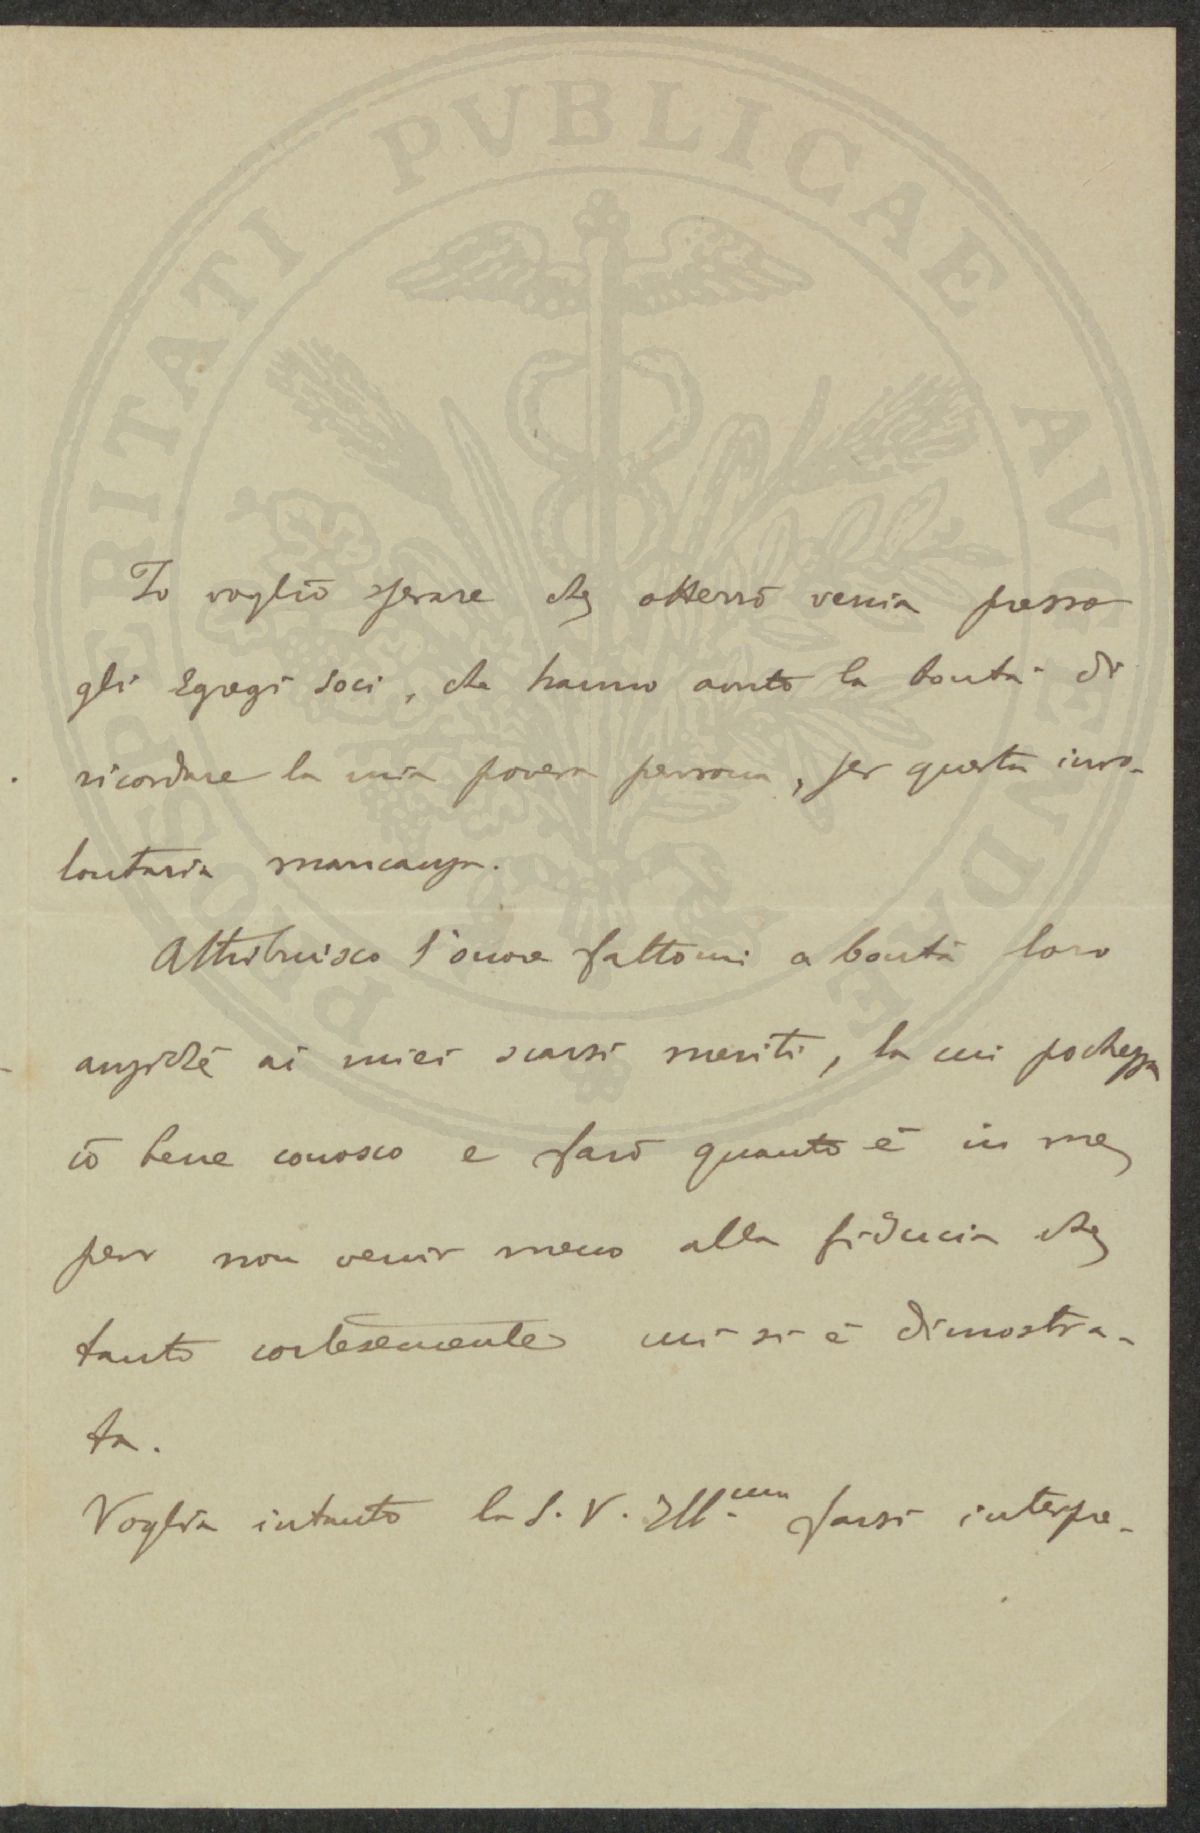 PROSPERITATI PVBLICAE AVGENDAE
Io voglio sperare che otterrò venia presso
gli Egregi Soci, che hanno avuto la bontà di
ricordare la mia povera persona, per questa invo-
lontaria mancanza.
Attribuisco l'onore fattomi a bontà loro
anziché ai miei scarsi meriti, la cui pochezza
io bene conosco e farò quanto è in me
per non venir meno alla fiducia che
tanto cortesemente mi si è dimostra-
ta.
Voglia intanto la S. V. Ill.ma farsi interpre-